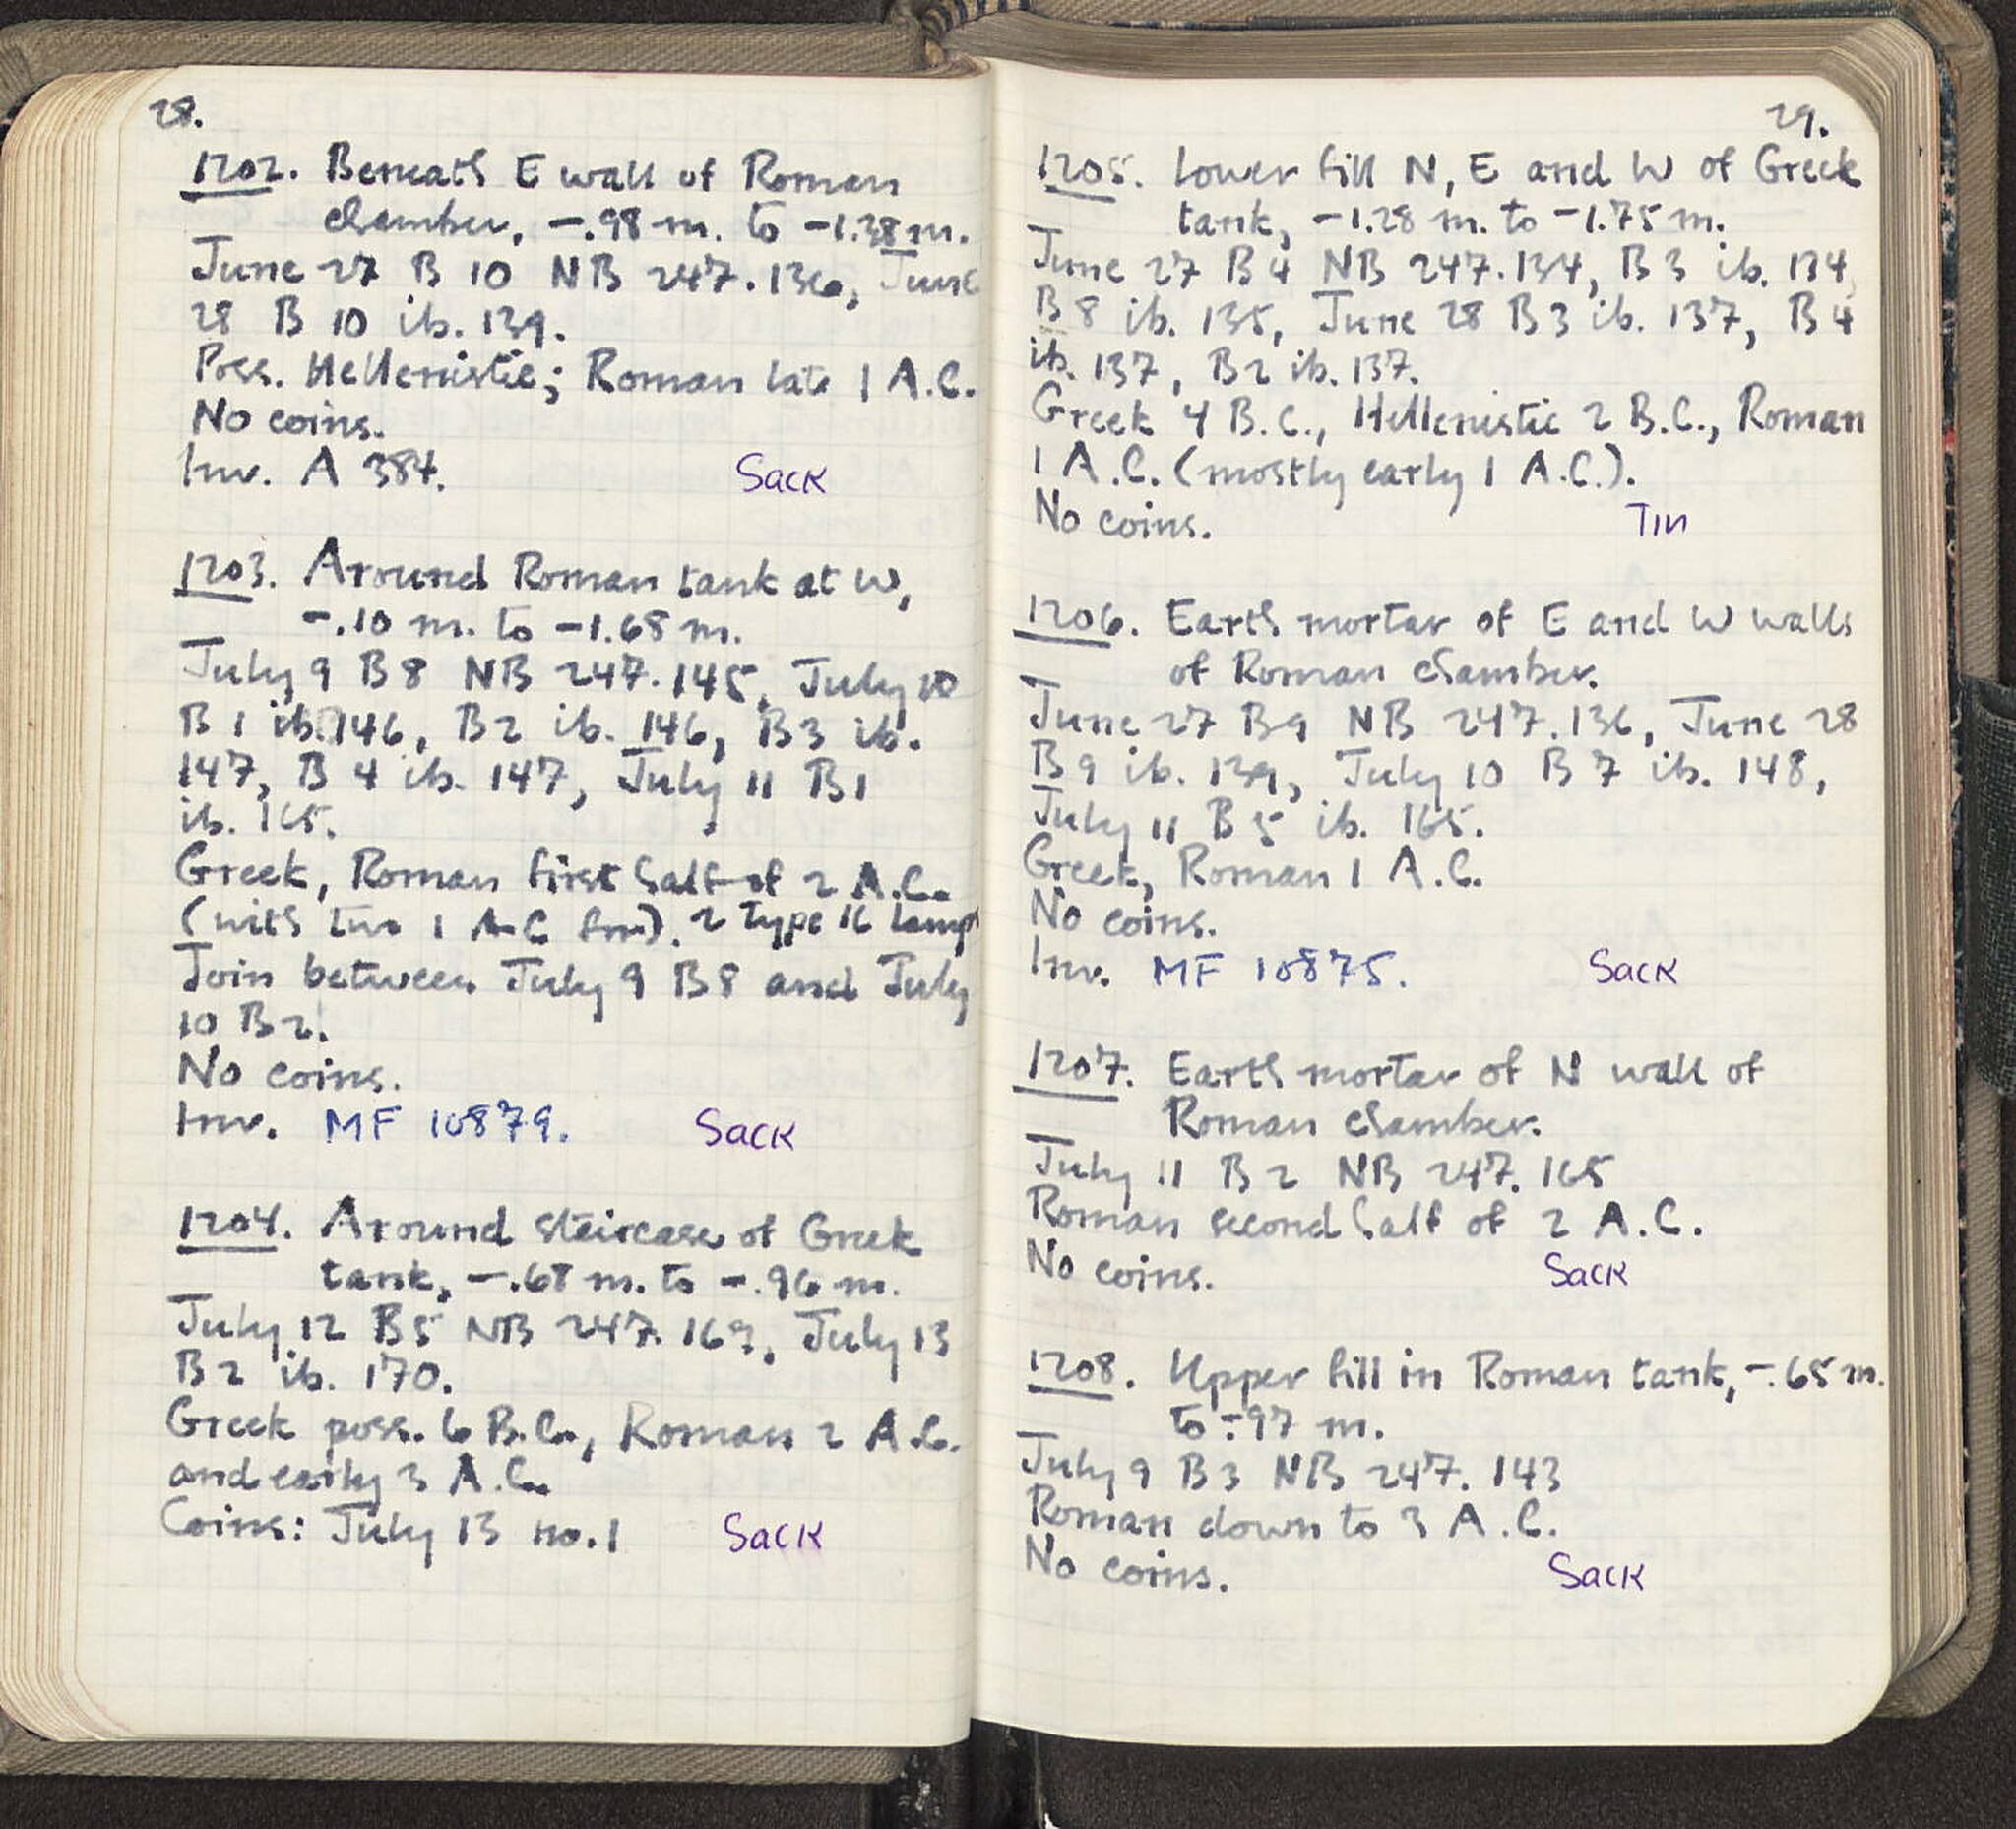 28.
1202. Beneath E wall of Roman
chamber, -.98 m. to -1.38 m.
June 27 B 10 NB 247.136, June
28 B 10 ib. 139.
Poss. Hellenistic; Roman late 1 A.C.
No coins.
Inv. A 384. Sack
1203. Around Roman tank at W,
-.10 m. to -1.68 m.
July 9 B 8 NB 247.145, July 10
B 1 ib. 146, B 2 ib. 146, B 3 ib.
147, B 4 ib. 147, July 11 B 1
ib. 165.
Greek, Roman first half of 2 A.C.
(with two 1 A.C. frr). 2 Type 16 lamps
Join between July 9 B 8 and July
10 B 2.
No coins.
Inv. MF 10879. Sack
1204. Around staircase of Greek
tank, -.68 m. to -.96 m.
July 12 B 5 NB 247. 169, July 13
B 2 ib. 170.
Greek poss. 6 B.C., Roman 2 A.C.
and early 3 A.C.
Coins: July 13 no. 1 Sack
29.
1205. Lower fill N, E and W of Greek
tank, -1.28 m. to -1.75 m.
June 27 B 4 NB 247.134, B 3 ib. 134,
B 8 ib. 135, June 28 B 3 ib. 137, B 4
ib. 137, B 2 ib. 137.
Greek 4 B.C., Hellenistic 2 B.C., Roman
1 A.C. (mostly early 1 A.C.).
No coins. Tin
1206. Earth mortar of E and W walls
of Roman chamber.
June 27 B 9 NB 247.136, June 28
B 9 ib. 139, July 10 B 7 ib. 148,
July 11 B 5 ib. 165.
Greek, Roman 1 A.C.
No coins.
Inv. MF 10875. Sack
1207. Earth mortar of N wall of
Roman chamber.
July 11 B 2 NB 247. 165
Roman second half of 2 A.C.
No coins. Sack
1208. Upper fill in Roman tank, -.65 m.
to -.97 m.
July 9 B 3 NB 247. 143
Roman down to 3 A.C.
No coins. Sack